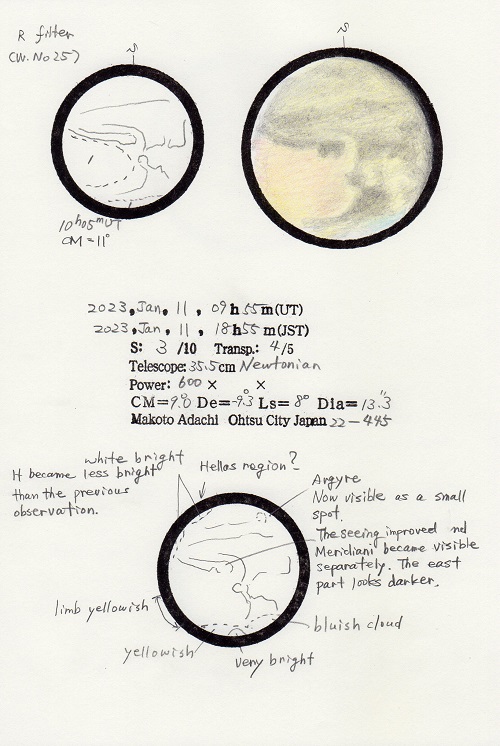 R filter
(W. No 25)
S
S
10h05mUT
CM = 11°
2023, Jan, 11, 09h55m(UT)
2023, Jan, 11, 18h55m(JST)
S: 3 /10 Transp.: 4/5
Telescope: 35.5cm Newtonian
Power: 600 × ×
CM=9.0° De=-9.3° Ls= 8° Dia= 13."3
Makoto Adachi Ohtsu City Japan 22-445
white bright
It became less bright
than the previous
observation.
Hellas region?
Argyre
Now visible as a small
spot.
The seeing improved nd
Meridiani became visible
separately. The east
part looks darker.
limb yellowish
yellowish
very bright
bluish cloud